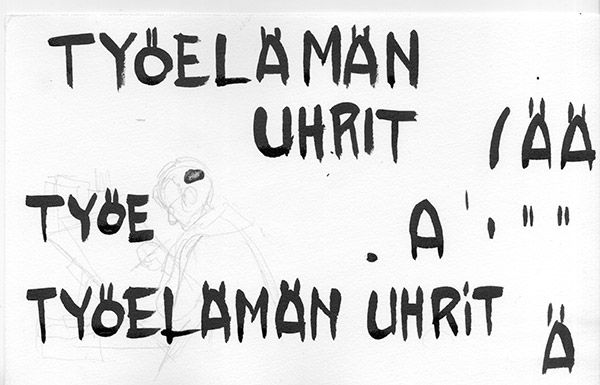 TYÖELÄMÄN
UHRIT / ÄÄ
TYÖE . A ' . " "
TYÖELÄMÄN UHRiT Ä